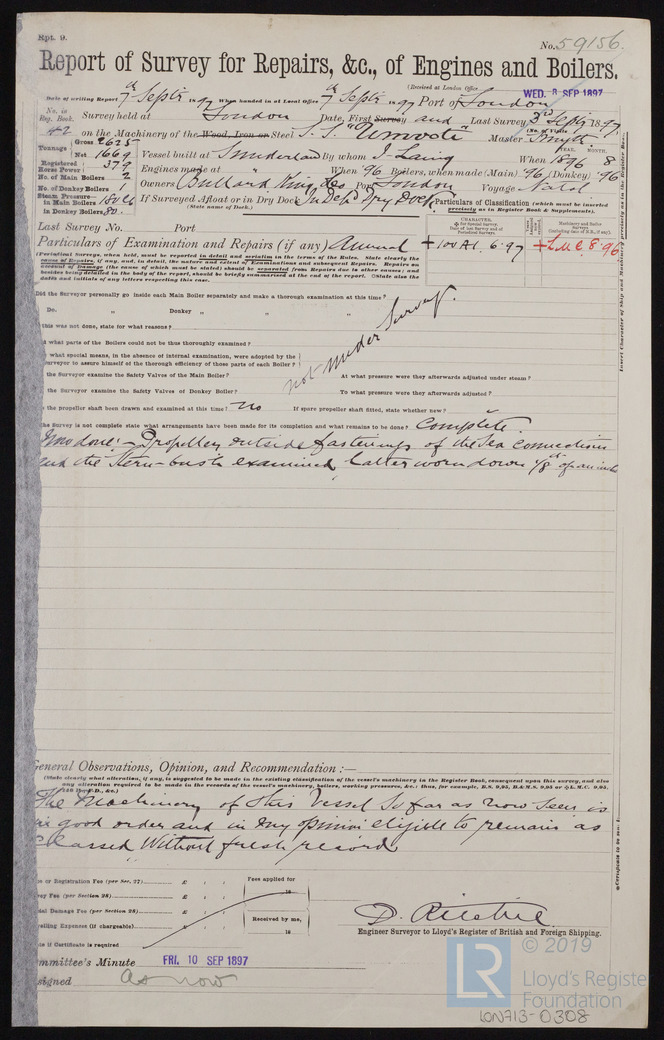 Rpt. 9.
No. 59156.
Report of Survey for Repairs, &c., of Engines and Boilers.
(Received at London Office WED. 8 SEP 1897
Date of writing Report 7th Septr 1897 When handed in at Local Office 7th Septr 1897 Port of London
No. in Reg. Book. Survey held at London Date, First Survey and Last Survey 3rd Septr 1897
42 on the Machinery of the Wood, Iron or Steel S.S. "Umvoti" Master Smyth
(No. of Visits
Tonnage Gross 2625
Net 1669 Vessel built at Sunderland By whom J. Laing When 1896 8
YEAR. MONTH.
Registered Horse Power 379 Engines made at " When '96 Boilers, when made (Main) '96 (Donkey) '96
No. of Main Boilers 2 Owners Bullard King & Co Port London Voyage Natal
No. of Donkey Boilers 1
Steam Pressure in Main Boilers 180 lb If Surveyed Afloat or in Dry Dock Dry Dock.
(State name of Dock.)
in Donkey Boilers 80.
Particulars of Classification (which must be inserted precisely as in Register Book & Supplements).
Last Survey No. Port
Particulars of Examination and Repairs (if any) Annual
+100A1. 6.97 +L.M.C. 8.96
(Periodical Surveys, when held, must be reported in detail and seriatim in the terms of the Rules. State clearly the
cause of Repairs, if any, and, in detail, the nature and extent of Examinations and subsequent Repairs. Repairs on
account of Damage (the cause of which must be stated) should be separated from Repairs due to other causes; and
besides being detailed in the body of the report, should be briefly summarised at the end of the report. State also the
dates and initials of any letters respecting this case.
Did the Surveyor personally go inside each Main Boiler separately and make a thorough examination at this time?
Do. " Donkey " " "
this was not done, state for what reasons?
what parts of the Boilers could not be thus thoroughly examined?
what special means, in the absence of internal examination, were adopted by the
surveyor to assure himself of the thorough efficiency of those parts of each Boiler?
not under Survey.
the Surveyor examine the Safety Valves of the Main Boiler? At what pressure were they afterwards adjusted under steam?
the Surveyor examine the Safety Valves of Donkey Boiler? To what pressure were they afterwards adjusted?
the propeller shaft been drawn and examined at this time? No If spare propeller shaft fitted, state whether new?
the Survey is not complete state what arrangements have been made for its completion and what remains to be done? Complete.
Now done:- Propeller, outside fastenings of the Sea connections
and the Stern-bush examined, latter worn down 1/8th of an inch
General Observations, Opinion, and Recommendation:—
(State clearly what alteration, if any, is suggested to be made in the existing classification of the vessel's machinery in the Register Book, consequent upon this survey, and also
any alteration required to be made in the records of the vessel's machinery, boilers, working pressures, &c.: thus, for example, B.S. 9,95, B.&M.S. 9,95 or L.M.C. 9,95,
The Machinery of this Vessel so far as now seen is
in good order and in my opinion eligible to remain as
Classed without fresh record
or Registration Fee (per Sec. 27) £ : : Fees applied for
Survey Fee (per Section 28) £ : : 18
Special Damage Fee (per Section 28) £ : :
Travelling Expenses (if chargeable) £ : : Received by me,
18
D. Ritchie
Engineer Surveyor to Lloyd's Register of British and Foreign Shipping.
State if Certificate is required
Committee's Minute FRI. 10 SEP 1897
Assigned as now
© 2019
LR
Lloyd's Register
Foundation
LON713-0308